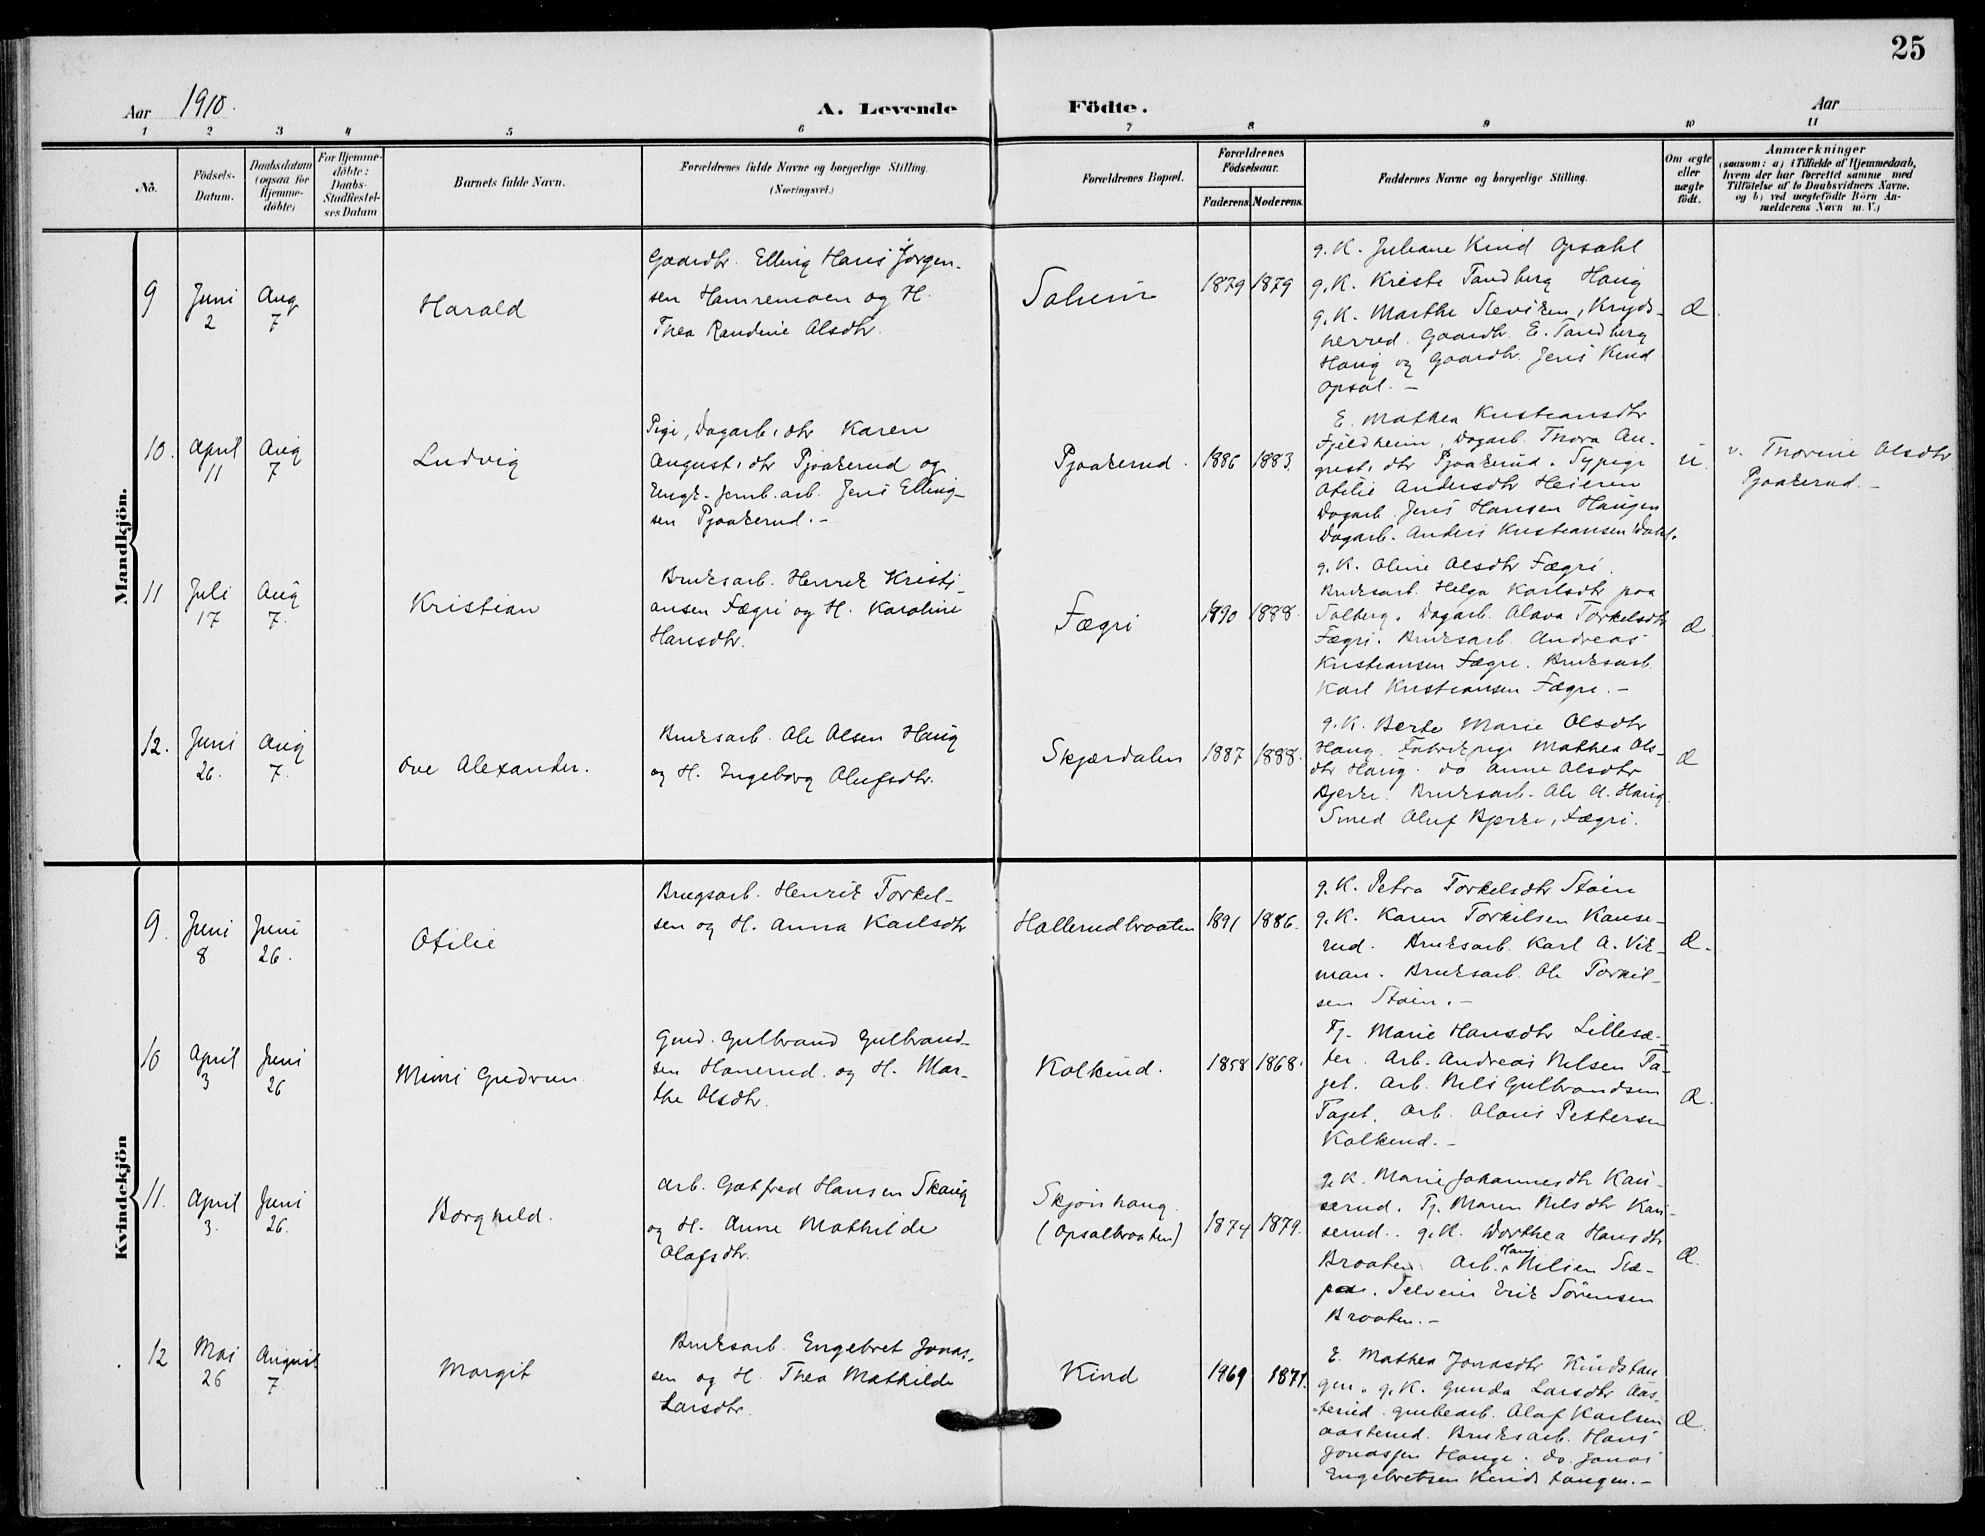 25
Aar 1910.
A. Levende Födte.
Aar
1 2 3 4 5 6 7 8 9 10 11
No.
Födsels-
Datum.
Daabsdatum
(ogsaa for
Hjemme-
döbte)
For Hjemme-
döbte:
Daabs-
Stadfæstel-
ses Datum
Barnets fulde Navn.
Forældrenes fulde Navne og borgerlige Stilling.
(Næringsvei.)
Forældrenes Bopæl.
Forældrenes
Födselsaar.
Faderens. Moderens.
Faddernes Navne og borgerlige Stilling.
Om ægte
eller
uægte
født.
Anmærkninger
(saasom: a) i Tilfælde af Hjemmedaab,
hvem der har forrettet samme med
Tilföielse af to Daabsvidners Navne.
og b) ved uægtefödte Börn An-
melderens Navn m. V.)
Mandkjön.
9
Juni
2
Aug
7
Harald
Gaardbr. Elling Hans Jörgen-
sen Hamremoen og H.
Thea Randine Olsdtr.
Solheim
1879 1879
g. K. Juliane Kind Opsahl
g. K. Kriste Tandberg Haug
g. K. Marthe Sleviken, Kryds-
herred. Gaardbr. E. Tandberg
Haug og Gaardbr. Jens Kind
Opsal. -
Æ.
10.
April
11
Aug
7
Ludvig
Pige, Dagarb. dtr Karen
August. dtr Pjaakerud og
Ungk. Jernb. arb. Jens Elling-
sen Pjaakerud. -
Pjaakerud.
1886 1883.
E. Mathea Kristiansdtr
Fjeldheim, Dagarb. Thora An-
gust. dtr Pjaakerud. Sypige
Otilie Andersdtr Heieren
Dagarb. Jens Hansen Haugen
Dagarb. Anders Kristiansen Dahl.
u.
v. Thorine Olsdtr
Pjaakerud. -
11
Juli
17
Aug
7.
Kristian
Bruksarb. Henrik Kristi-
ansen Fægri og H. Karoline
Hansdtr.
Fægri
1890 1888.
g. K. Oline Olsdtr Fægri.
Bruksarb. Helga Karlsdtr paa
Solberg. Dagarb. Olava Torkelsdtr
Fægri. Bruksarb. Andreas
Kristiansen Fægri. Bruksarb.
Karl Kristiansen Fægri. -
Æ.
12.
Juni
26.
Aug
7.
Ove Alexander.
Bruksarb. Ole Olsen Haug
og H. Ingeborg Olufsdtr.
Skjærdalen
1887 1888.
g. K. Berte Marie Olsdtr
Haug. Fabrikpige Mathea Ols-
dtr Haug. do Anne Olsdtr
Bjerke. Bruksarb. Ole O. Haug.
Smed Oluf Bjerke, Fægri.
Æ
Kvindekjön
9.
Juni
8
Juni
26.
Otilie
Brugsarb. Henrik Torkel-
sen og H. Anna Karlsdtr
Hallerudbraaten
1891 1886.
g. K. Petra Torkelsdtr Støen
g. K. Karen Torkilsen Kanse-
rud. Bruksarb. Karl A. Vik-
man. Bruksarb. Ole Torkil-
sen Støen. -
Æ.
10
April
3
Juni
26
Mimi Gudrun
Gmd. Gulbrand Gulbrand-
sen Hanerud. og H. Mar-
the Olsdtr.
Kolkind.
1858 1868.
Tj. Marie Hansdtr Lillesæ-
ter. Arb. Andreas Nilsen Ta-
jet. Arb. Nils Gulbrandsen
Tajet. Arb. Olaus Pettersen
Kolkind. -
Æ.
11.
April
3.
Juni
26.
Borghild.
Arb. Gotfred Hansen Skaug
og H. Anne Mathilde
Olafsdtr.
Skjønhaug.
(Opsalbraaten)
1874 1879.
g. K. Marie Johannesdtr Kan-
serud. Tj. Maren Nilsdtr Kan-
serud. g. K. Dorthea Hansdtr
Braaten. Arb. Hans Nilsen
Selveier Erik Sørensen
Braaten. -
Æ.
12
Mai
26
August
7
Margit
Bruksarb. Engebret Jonas-
sen og H. Thea Mathilde
Larsdtr.
Kind
1969 1871.
E. Mathea Jonasdtr Kindstan-
gen. g. K. Gunda Larsdtr Aas-
terud. Grubearb. Olaf Karlsen
Aasterud. Bruksarb. Hans
Jonassen Hauge. do. Jonas
Engebretsen Kindstangen. -
Æ.